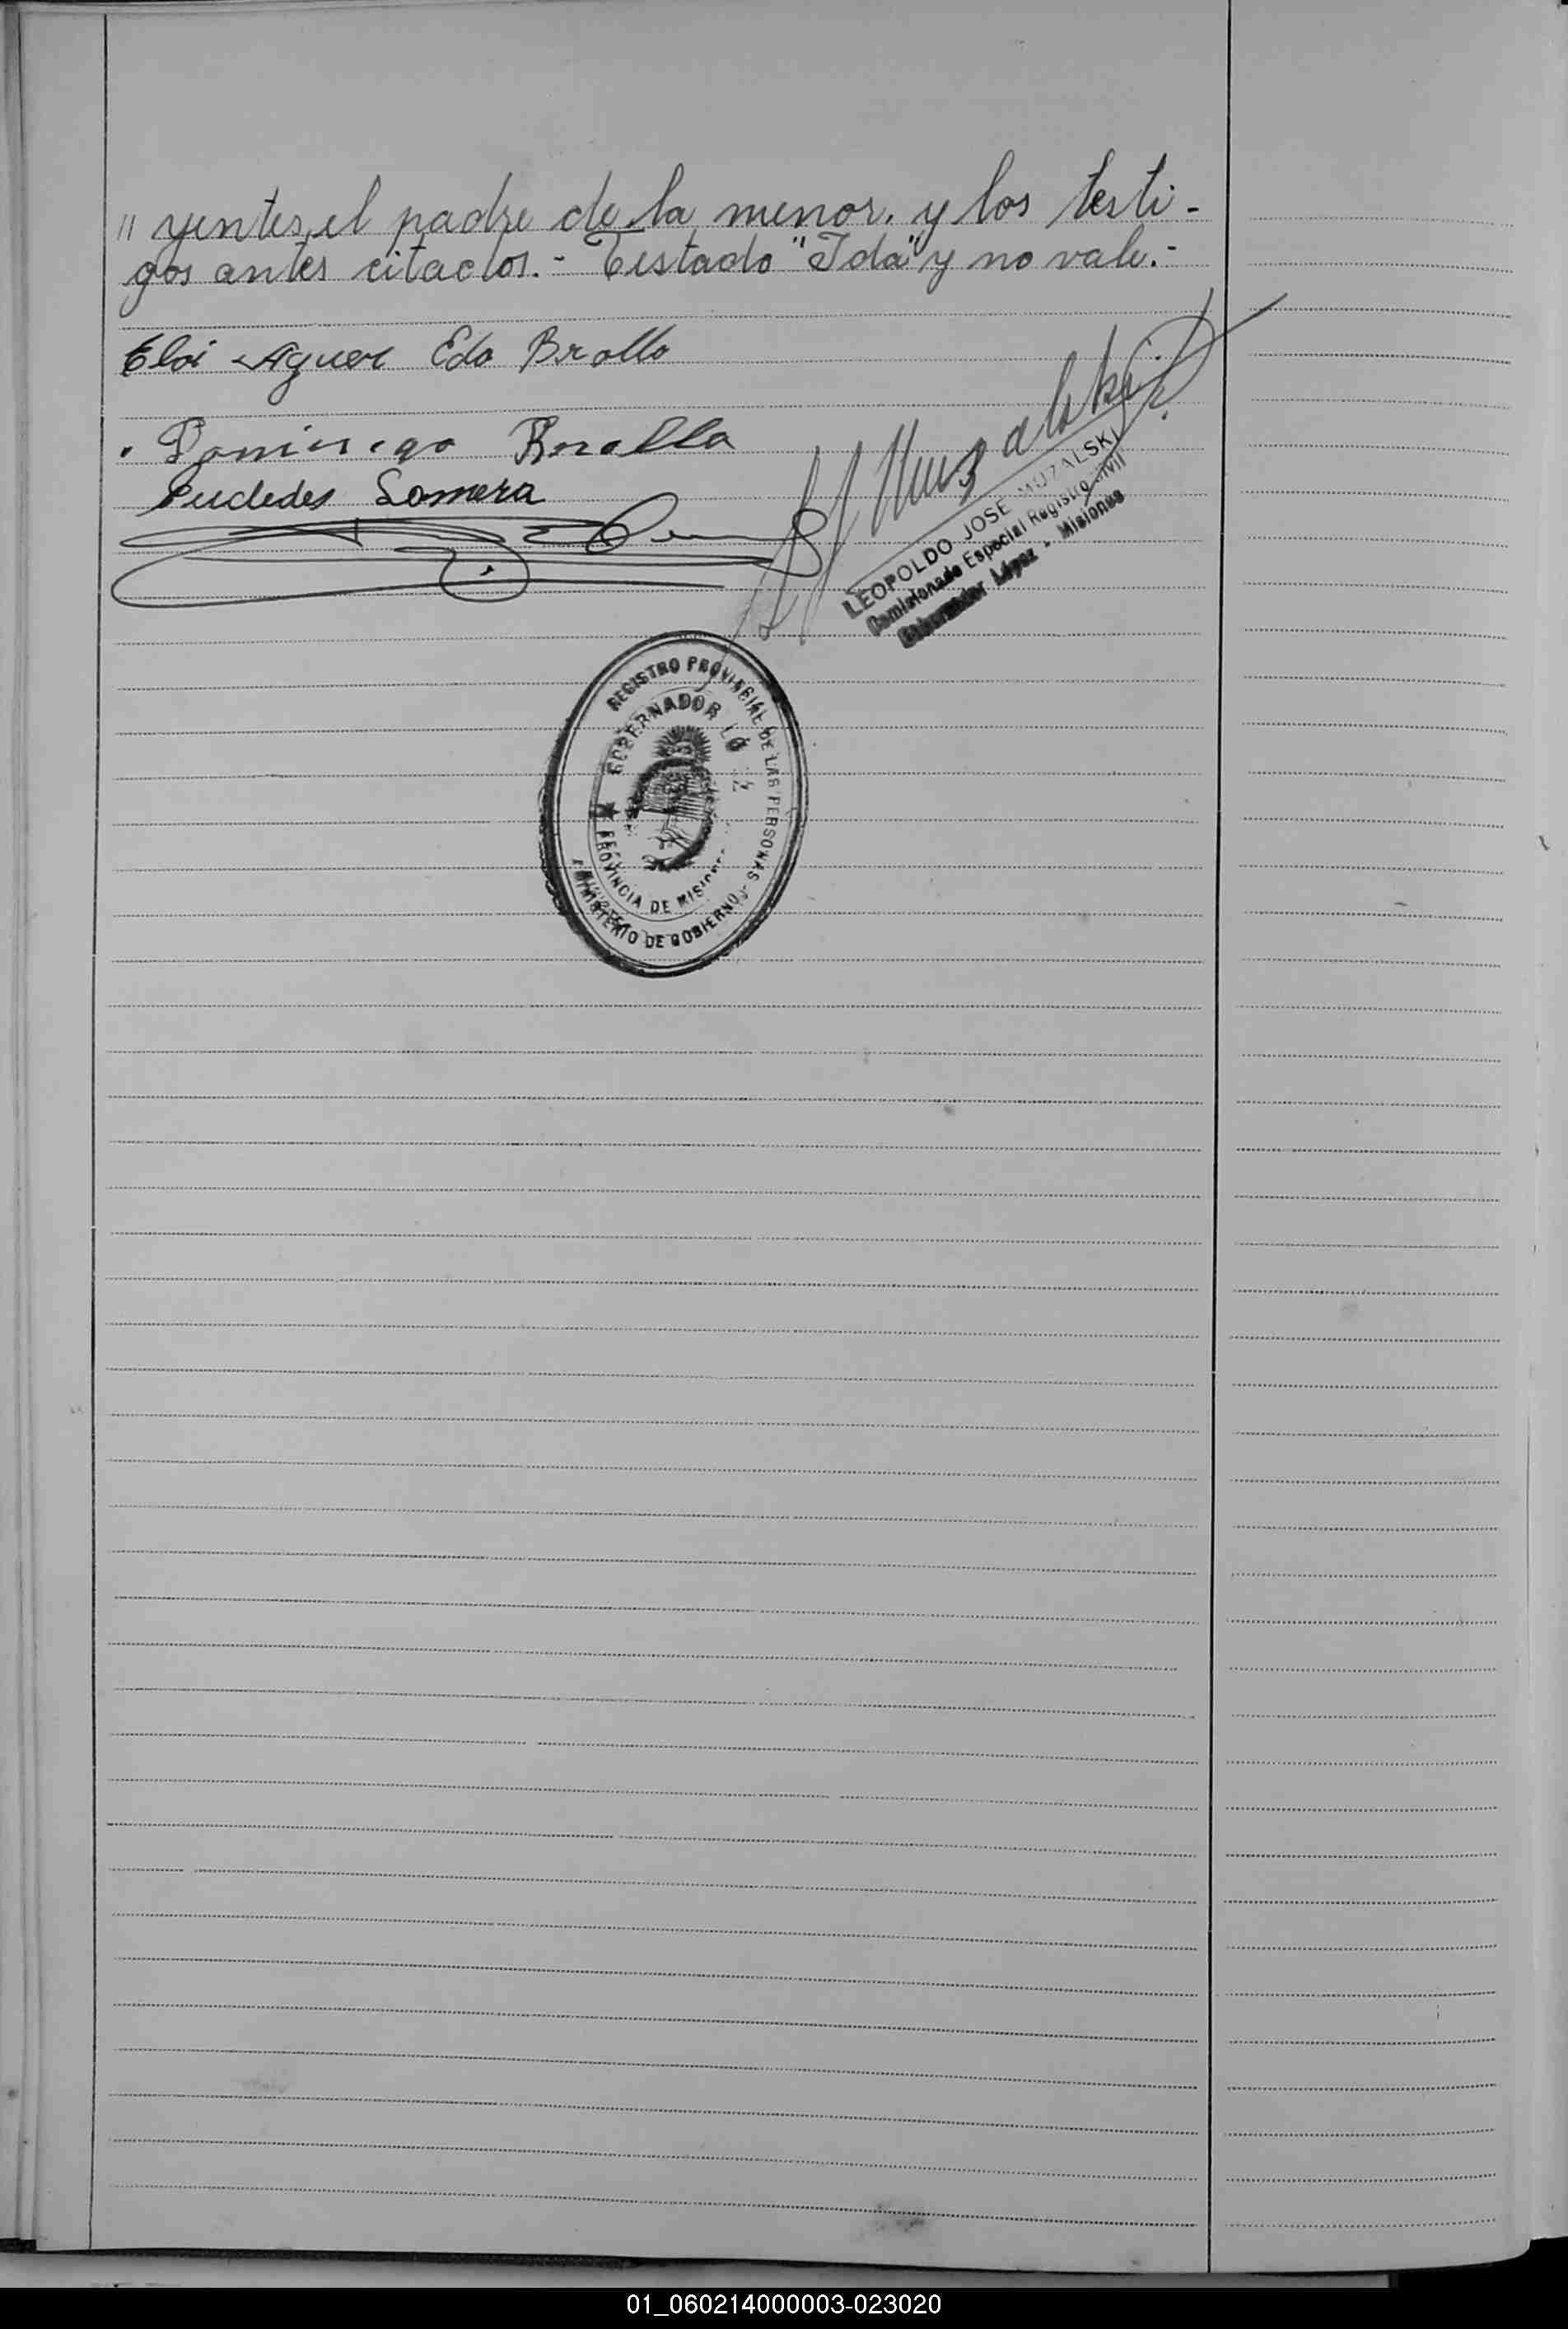 " yentes, el padre de la menor. y los testi-
gos antes citados.- Testado "Ida" y no vale.-
Eloi Aguer Eda Brollo
Domingo Brollo
Euclides Somera
LMuzalski
LEOPOLDO JOSE MUZALSKI
Comisionado Especial Registro Civil
Gobernador López - Misiones
REGISTRO PROVINCIAL DE LAS PERSONAS
GOBERNADOR LO Z
PROVINCIA DE MISIONES
MINISTERIO DE GOBIERNO
01_060214000003-023020